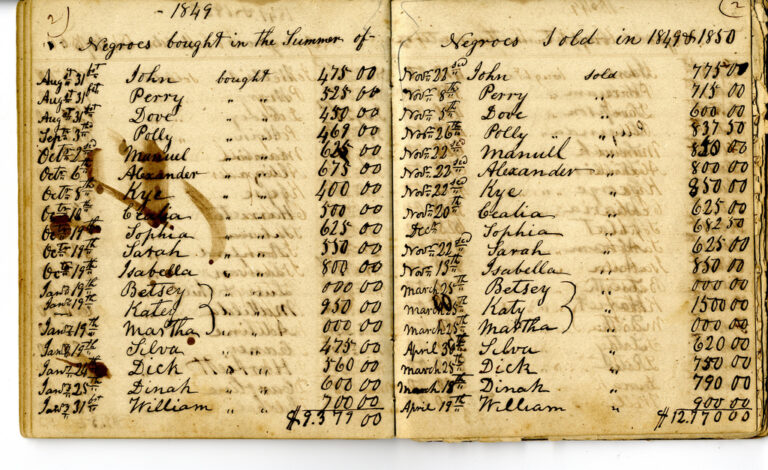 2)
- 1849
Negroes bought in the Summer of
Augt 31st John bought 475 00
Augt 31st Perry " " 525 00
Augt 31st Dove " " 450 00
Sept 3rd Polly " " 469 00
Octr 2nd Manuel " " 625 00
Octr 6th Alexander " " 675 00
Octr 8th Kye " " 400 00
Octr Cealia " " 500 00
Octr 19th Sophia " " 625 00
Octr 19th Sarah " " 550 00
Octr 19th Isabella " " 800 00
Jany 19th Betsey 000 00
Jany 19th Katey 950 00
Jany 19th Martha 000 00
Jany 19th Silva " " 475 00
Jany Dick " " 560 00
Jany 25th Dinah " " 600 00
Jany 31st William " " 700 00
$9.379 00
(2
Negroes Sold in 1849 & 1850
Novr 22nd John sold 775 00
Novr 8th Perry " 715 00
Novr 5th Dove " 600 00
Novr 26th Polly " 837 50
Novr 22nd Manuell " 850 00
Novr 22nd Alexander " 800 00
Novr 22nd Kye " 850 00
Novr 20th Cealia " 625 00
Dec Sophia " 682 50
Novr 22nd Sarah " 625 00
Novr 15th Isabella " 850 00
March 25th Betsey 000 00
March 25th Katy 1500 00
March 25th Martha 000 00
April 30th Silva " 620 00
March 25th Dick " 750 00
March 18th Dinah " 790 00
April 19th William " 900 00
$12.170 00